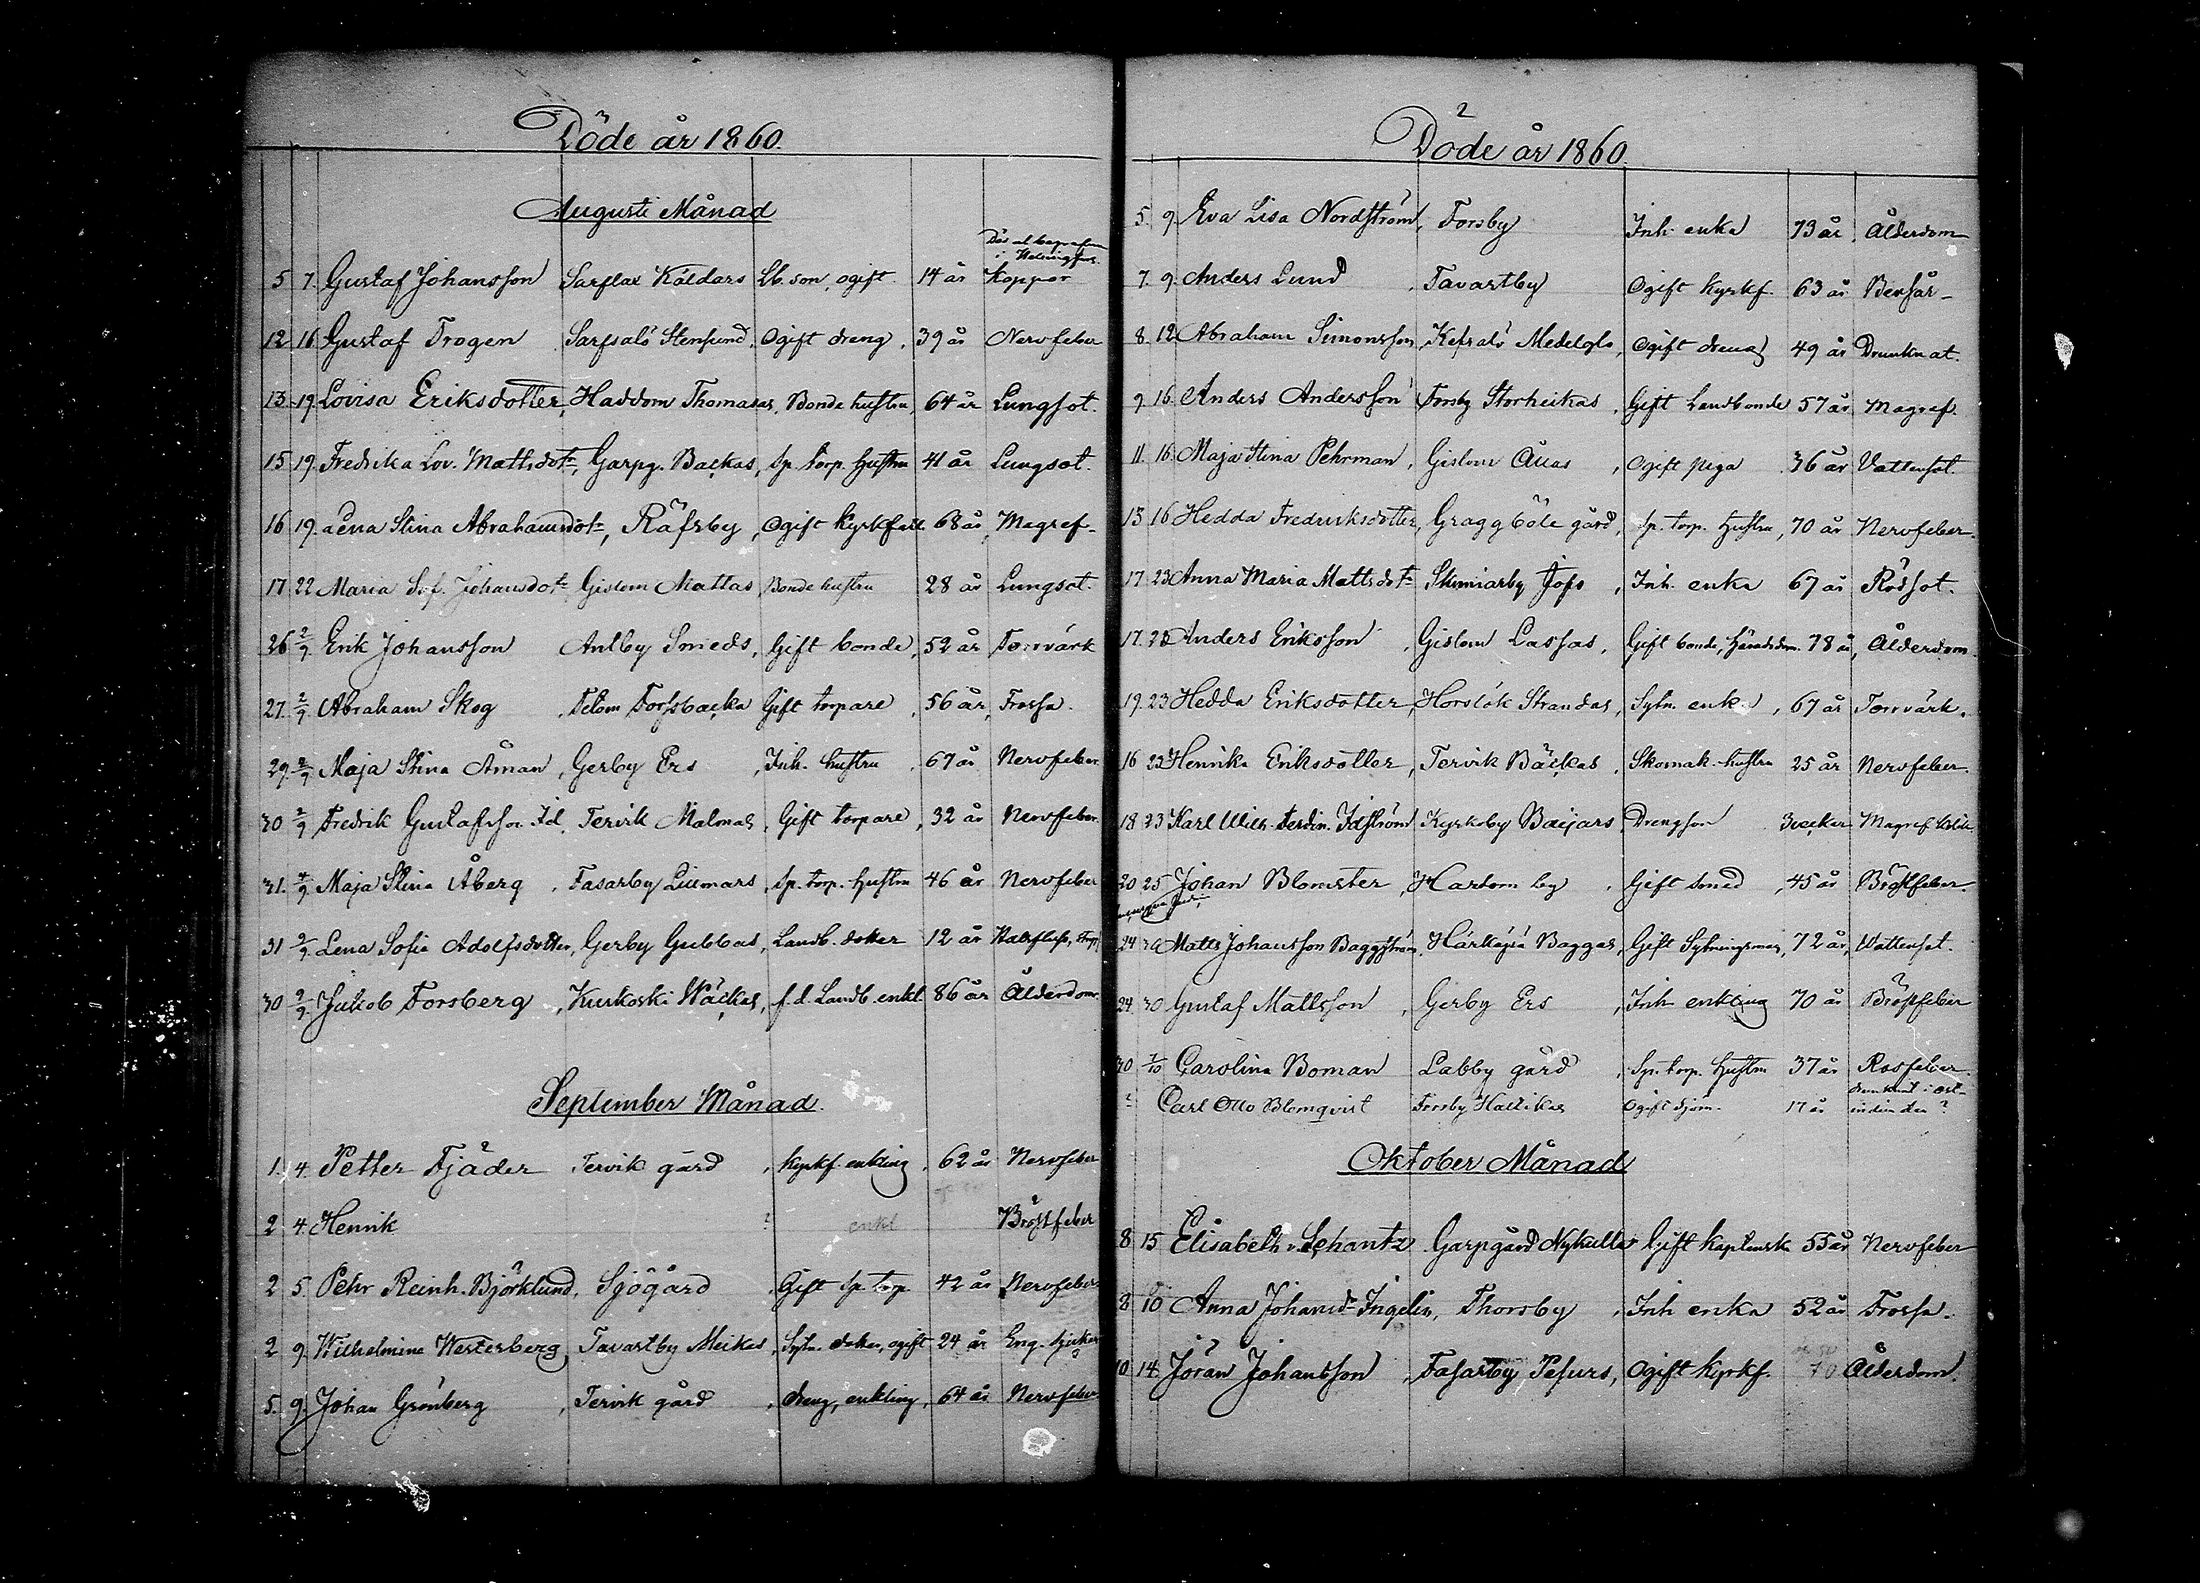 Döde år 1860.
Augusti Månad
Död o begrafven
i Helsingfors.
5 7. Gustaf Johansson Sarflax Käldars Lb. son, ogift. 14 år Koppor
12 16 Gustaf Trogen Sarfsalö Stensund, Ogift dreng, 39 år Nervfeber
13 19. Lovisa Eriksdotter, Haddom Thomasas, Bonde hustru, 64 år Lungsot.
15 19. Fredrika Lov. Mattsdotr, Garpg. Backas, Sp. torp. hustru 41 år Lungsot.
16 19. Lena Stina Abrahamsdotr, Räfsby, Ogift kyrkfatt. 68 år, Magref.
17 22 Maria Sof. Johansdotr Gislom Mattas Bonde hustru 28 år Lungsot.
26 2/9 Erik Johansson Antby Smeds, Gift bonde, 52 år Torrvärk
27. 2/9 Abraham Skog, Tetom Forssbacka Gift torpare, 56 år, Frossa.
29 2/9 Maja Stina Åman, Gerby Ers, Inh. hustru, 67 år Nervfeber.
30 2/9 Fredrik Gustafsson Id, Tervik Malmas, Gift torpare, 32 år Nervfeber.
31. 4/9 Maja Stina Åberg, Fasarby Lillmars, Sp. torp. hustru 46 år Nervfeber
31 9/9. Lena Sofia Adolfsdotter, Gerby Gubbas, Landb. doter 12 år Halsfluss,
30 9/9. Jakob Forsberg, Kuskoski Wäckas, f.d. Landb. enkl. 86 år Ålderdom.
September Månad.
1. 4. Petter Fjäder Tervik gård, kyrkf. enkling, 62 år Nervfeber
2 4. Henrik ? enkl Bröstfeber
2 5. Pehr Reinh. Björklund, Sjögård, Gift sp. torp. 42 år Nervfeber
2 9. Wilhelmina Westerberg Tavastby Meikas, Sytn. doter, ogift 24 år Eng. sjukan
5. 9. Johan Grönberg, Tervik gård, dreng, enkling, 64 år Nervfeber
2
Döde år 1860.
5. 9. Eva Lisa Nordström, Forsby Inh. enka 73 år, Ålderdom
7. 9. Anders Lund, Tavastby Ogift kyrkf. 63 år Bensår
8. 12 Abraham Simonsson, Kefsalö Medelgls, Ogift dreng 49 år Drunknat.
9 16. Anders Andersson Forsby Storheikas, Gift Landbonde 57 år Magref.
11 16. Maja Stina Pehrman, Gislom Ållas, Ogift piga 36 år Vattensot.
13 16 Hedda Fredriksdotter, Graggböle gård, Sp. torp. hustru, 70 år Nervfeber.
17. 23 Anna Maria Mattsdotr Skinnarby Jofs, Inh. enka 67 år Rödsot.
17. 23 Anders Eriksson, Gislom Lassas, Gift bonde, Häradsdom. 78 år, Ålderdom.
19. 23 Hedda Eriksdotter, Horslök Strandas, Sytn. enka, 67 år Torrvärk.
16 23 Henrika Eriksdotter, Tervik Bäckas, Skomak. hustru 25 år Nervfeber.
18 23 Karl Wilh. Ferdin. Idström Kyrkoby Baijars, Drengson 3 veckor Magref
20 25 Johan Blomster, Hardom by, Gift smed, 45 år Bröstfeber.
24 30 Matts Johansson Baggström, Härkäpä Baggas, Gift Sytningsman, 72 år, Wattensot.
24. 30 Gustaf Mattsson, Gerby Ers, Inh. enkling 70 år Bröstfeber
30 7/10 Carolina Boman Labby gård, Sp. torp. hustru 37 år Rosfeber.
? Carl Otto Blomqvist Forsby Hallikas Ogift sjöm. 17 år drunknat i Ost-
indien den ?
Oktober Månad
8 15 Elisabeth v. Schantz Garpgård Nykulla Gift kaptenska 55 år Nervfeber
8 10 Anna Johansdr Ingelin, Thorsby, Inh enka 52 år Frossa.
10 14. Jöran Johansson, Fasarby Pesurs, Ogift kyrkf. 70 Ålderdom.